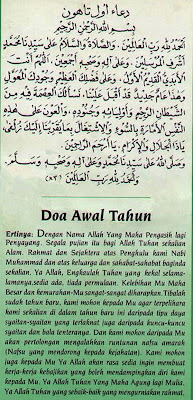 دعاء اول تاهون
بسم الله الرحمن الرحيم
الحمد لله رب العالمين، والصلاة والسلام على سيدنا محمد
وعلى آله وصحبه أجمعين. اللهم أنت
الأبدي القديم الأول، وعلى فضلك العظيم وجودك المعول
وهذا عام جديد قد أقبل علينا، نسألك العصمة فيه من
الشيطان الرجيم وأوليائه وجنوده، والعون على هذه
النفس الأمارة بالسوء والاشتغال بما يقربنا إليك زلفى
يا ذا الجلال والإكرام، يا أرحم الراحمين.
وصلى الله على سيدنا محمد وعلى آله وصحبه وسلم
والحمد لله رب العالمين
Doa Awal Tahun
Ertinya: Dengan Nama Allah Yang Maha Pengasih lagi
Penyayang. Segala pujian itu bagi Allah Tuhan sekalian
Alam. Rahmat dan Sejahtera atas Penghulu kami Nabi
Muhammad dan atas keluarga dan sahabat-sahabat baginda
sekalian. Ya Allah, Engkaulah Tuhan yang kekal selama-
lamanya,sedia ada, tiada permulaan. Kelebihan Mu Maha
Besar dan kemurahan-Mu sangat-sangat diharapkan. Tibalah
sudah tahun baru, kami mohon kepada Mu agar terpelihara
kami sekalian di dalam tahun baru ini daripada tipu daya
syaitan-syaitan yang terlaknat juga daripada kuncu-kuncu
syaitan dan bala tenteranya. Dan kami mohon daripada Mu
akan pertolongan mengalahkan runtunan nafsu amarah
(Nafsu yang mendorong kepada kejahatan). Kami mohon
juga kepada Mu Ya Allah akan rasa sedia ingin membuat
kerja-kerja kebajikan yang boleh mendampingkan diri kami
kepada Mu. Ya Allah Tuhan Yang Maha Agung lagi Mulia.
Ya Allah Tuhan yang sebaik-baik yang mengurniakan rahmat.